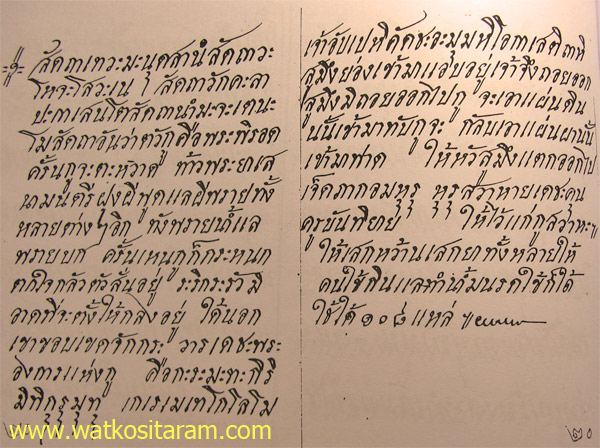 สัตถาเทวะมะนุสสานํสัตถาวะ
โหจะโสวะเน ฯ สัตถาวักคะลา
ปะถาเสนโตสัตถานํมะจะเตนะ
โมสัตถาอันว่าตัวกูคือพระพิรอด
ครั้นกูจะตะหวาด ท้าวพระยาเส
นามนตรีฝูงผีพูดแลผีพรายทั้ง
หลายต่างๆอีก ทังพรายน้ำแล
พรายบก ครั้นเหนกูก็กระหนก
ตกใจกลัวตัวสั่นอยู่ ระริกระรัวมิ
อาดที่จะตั้งให้ทรงอยู่ ได้นอก
เขาขอบเขตจักกระ วารเดชะพระ
องการแห่งกู คือกะระมะทะกิริ
มิทิกุรุมุทุ เกเรเมเทโกโลโม
เจ้าอับเปหิคัดชะอะมุมหิโอกาเสติถาหิ
สูมึงย่องเข้ามาแอบอยู่เจ้าจึงถอยออก
สูมึงมิถอยออกไปกู จะเอาแผ่นดิน
นั้นเข้ามาทับกูจะ กลับเอาแผ่นผานั้น
เข้ามาฟาด ให้หัวสูมึงแตกออกไป
เจ็ดภาคอมหุรุ หุรุสวาหายเดชะคุน
ครูบันทิยาย ให้ไว้แก่กูสวาหะฯ
ให้เสกหว้านเสกยาทั้งหลายให้
คนไข้กินแลทำน้ำมนรดไข้ก็ได้
ใช้ได้๑๐๘แหล่ ฯ
www.watkositaram.com